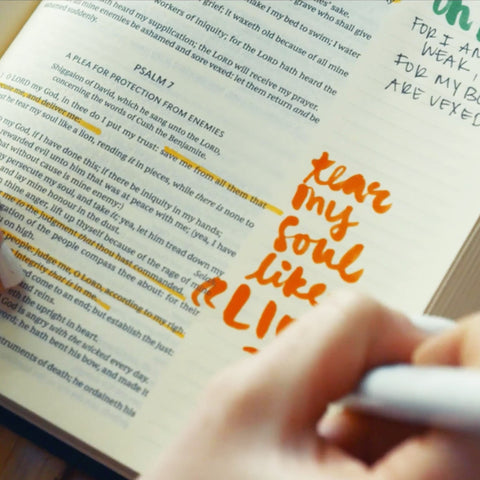 sake.
grave who shall give
I my bed to swim; I water
grief; it waxeth old because of all mine
workers of iniquity; for the LORD hath heard the
hath heard my supplication; the LORD will receive my prayer.
mine enemies be ashamed and sore vexed: let them return and be
ashamed suddenly.
PSALM 7
A PLEA FOR PROTECTION FROM ENEMIES
Shiggaion of David, which he sang unto the LORD,
concerning the words of Cush the Benjamite.
O LORD my God, in thee do I put my trust: save me from all them that
me, and deliver me:
he tear my soul like a lion, rending it in pieces, while there is none to
my God, if I have done this; if there be iniquity in my hands;
rewarded evil unto him that was at peace with me; (yea, I have
that without cause is mine enemy:)
persecute my soul, and take it; yea, let him tread down my
and lay mine honour in the dust.
Selah
in thine anger, lift up thyself because of the rage of
me to the judgment that thou hast commanded.
of the people compass thee about: for their
on high.
people: judge me, O LORD, according to my
integrity that is in me.
come to an end; but establish the just:
and reins.
the upright in heart.
God is angry with the wicked every day.
he hath bent his bow, and made it
instruments of death; he ordaineth his
FOR I AM
WEAK,
FOR MY BO
ARE VEXED
tear
my
soul
like
a LI